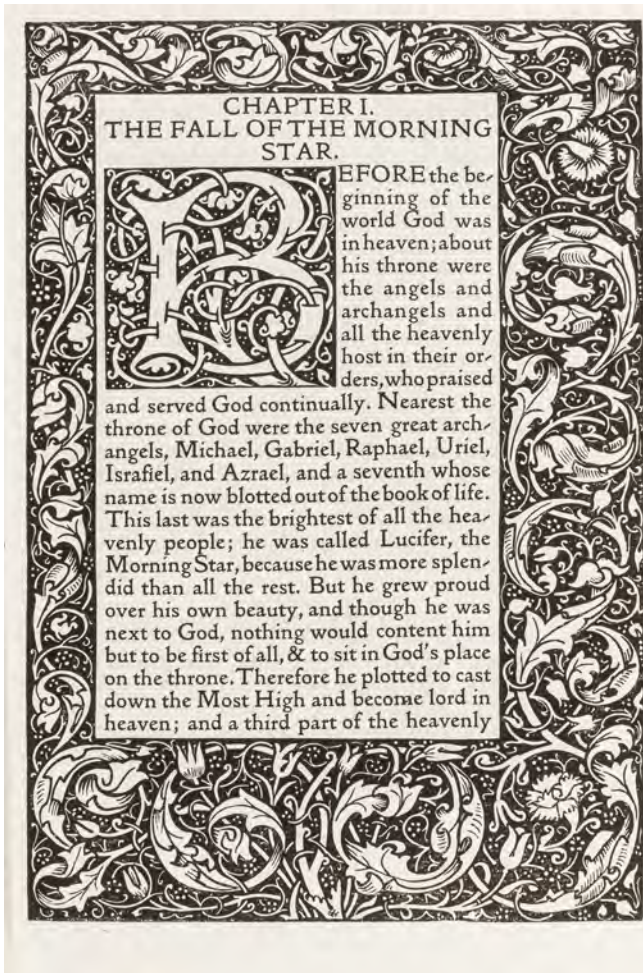 CHAPTER I.
THE FALL OF THE MORNING
STAR.
BEFORE the be-
ginning of the
world God was
in heaven; about
his throne were
the angels and
archangels and
all the heavenly
host in their or-
ders, who praised
and served God continually. Nearest the
throne of God were the seven great arch-
angels, Michael, Gabriel, Raphael, Uriel,
Israfiel, and Azrael, and a seventh whose
name is now blotted out of the book of life.
This last was the brightest of all the hea-
venly people; he was called Lucifer, the
Morning Star, because he was more splen-
did than all the rest. But he grew proud
over his own beauty, and though he was
next to God, nothing would content him
but to be first of all, & to sit in God's place
on the throne. Therefore he plotted to cast
down the Most High and become lord in
heaven; and a third part of the heavenly